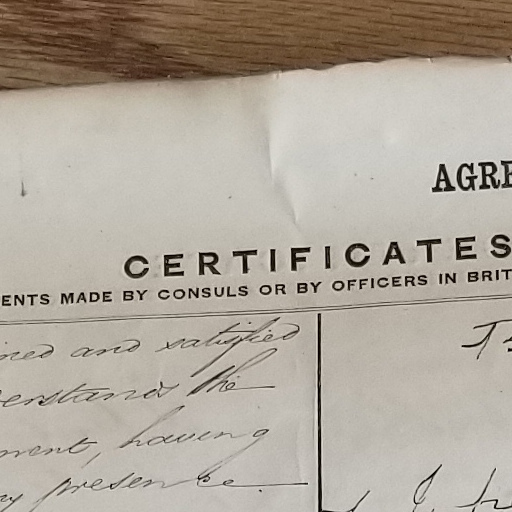 AGRE
CERTIFICATES
ENTS MADE BY CONSULS OR BY OFFICERS IN BRIT
ned and satisfied
erstands the
ment, having
y presence.